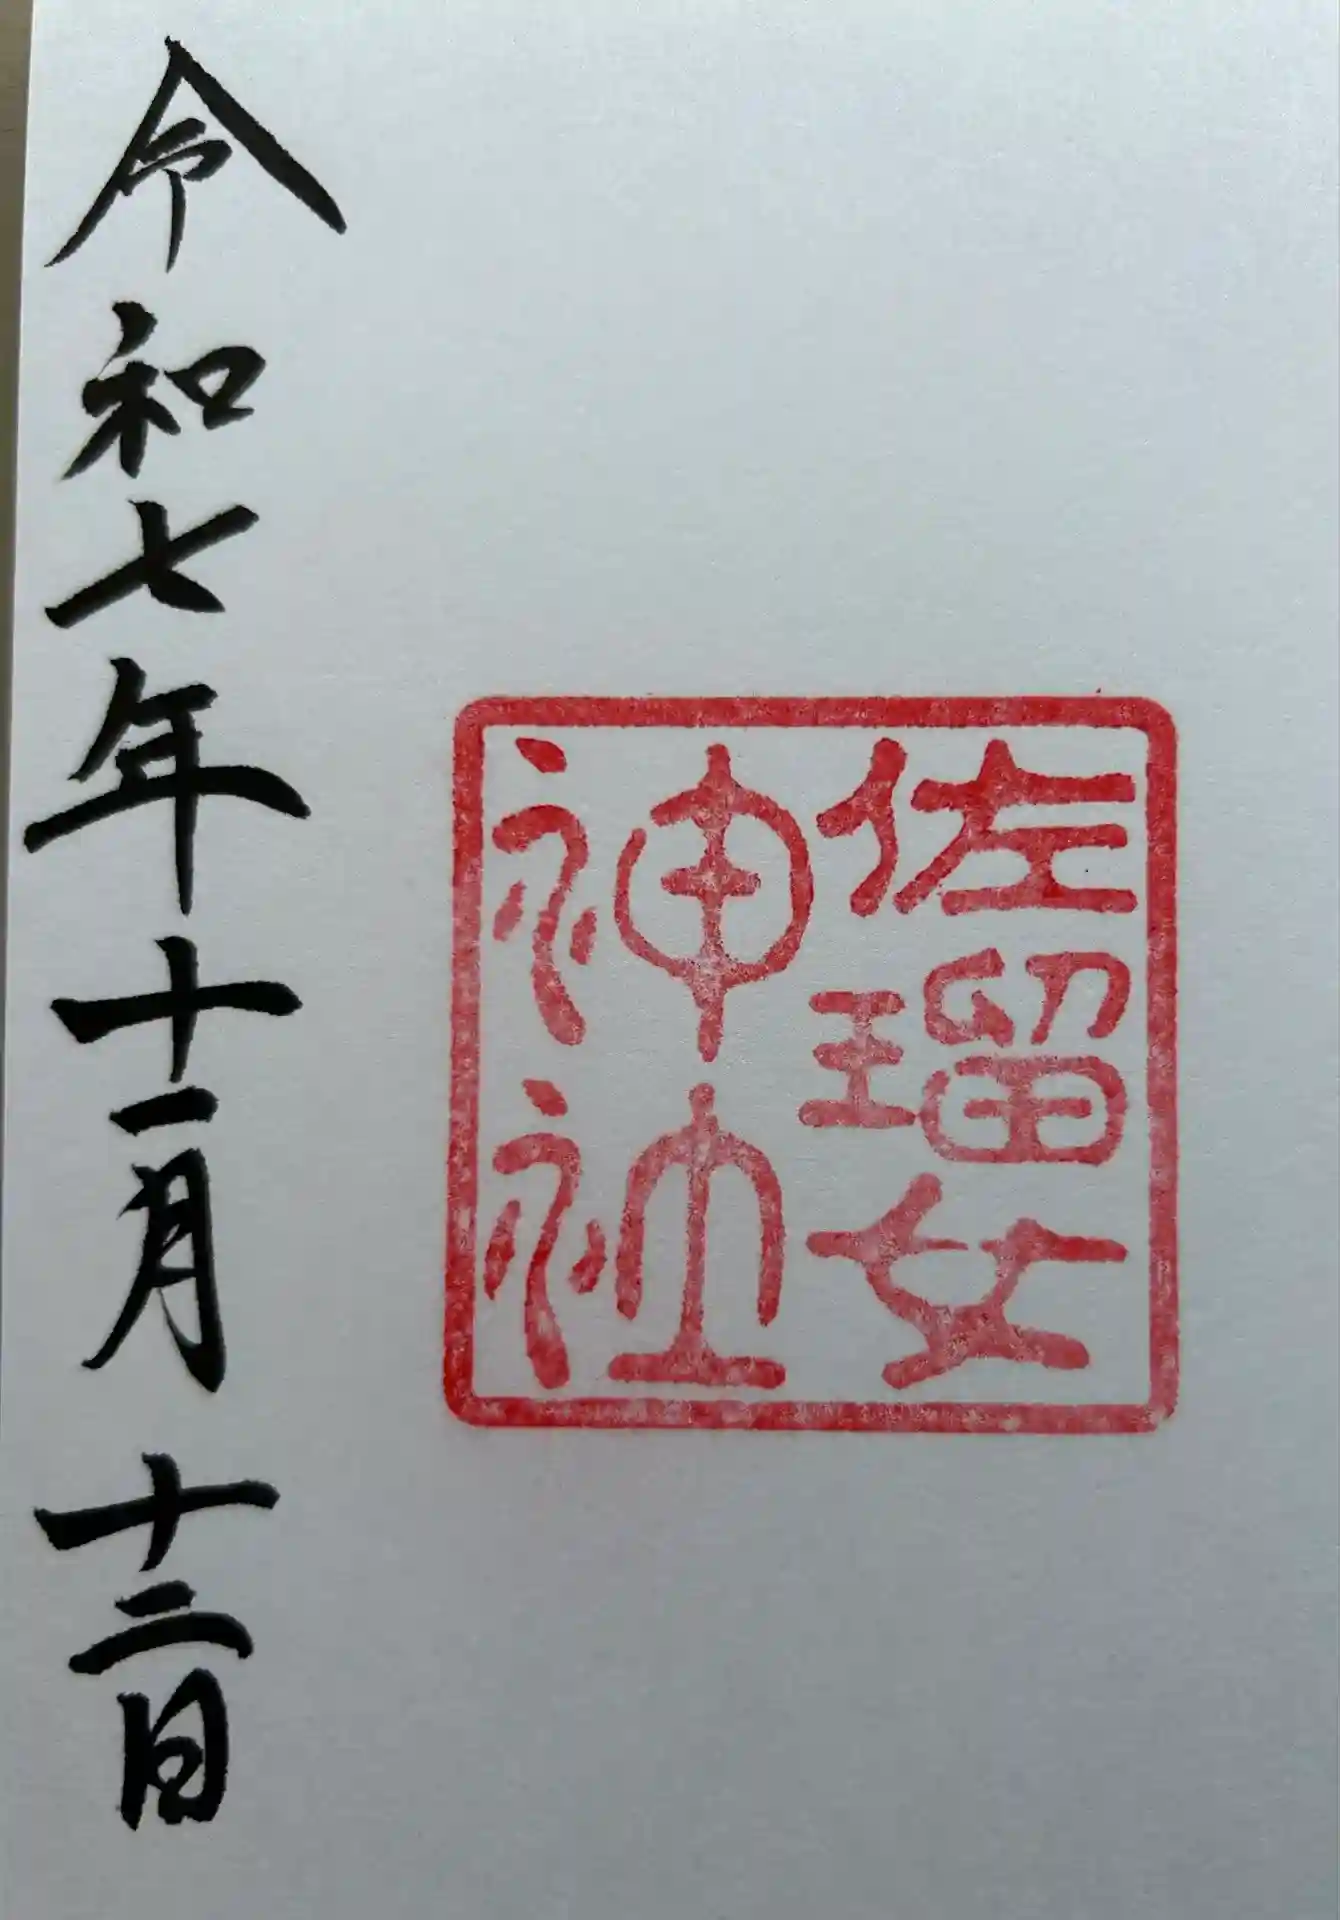 佐瑠女
神社
令和七年十一月十二日